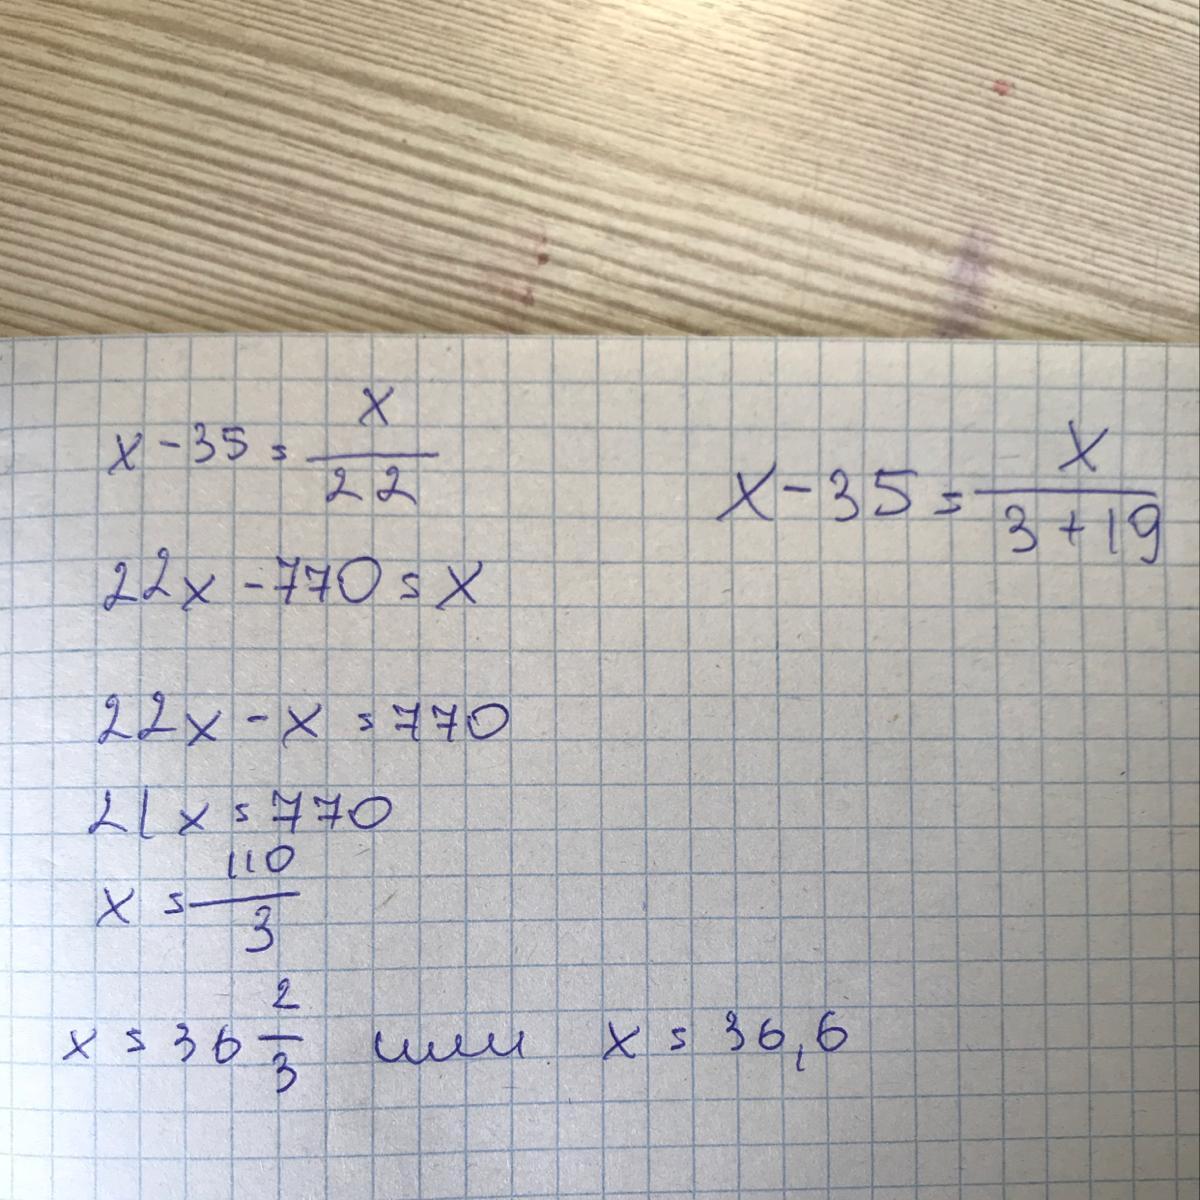 x - 35 = x/22
22x - 770 = x
22x - x = 770
21x = 770
x = 110/3
x = 36 2/3 или x = 36,6
x - 35 = x/(3 + 19)